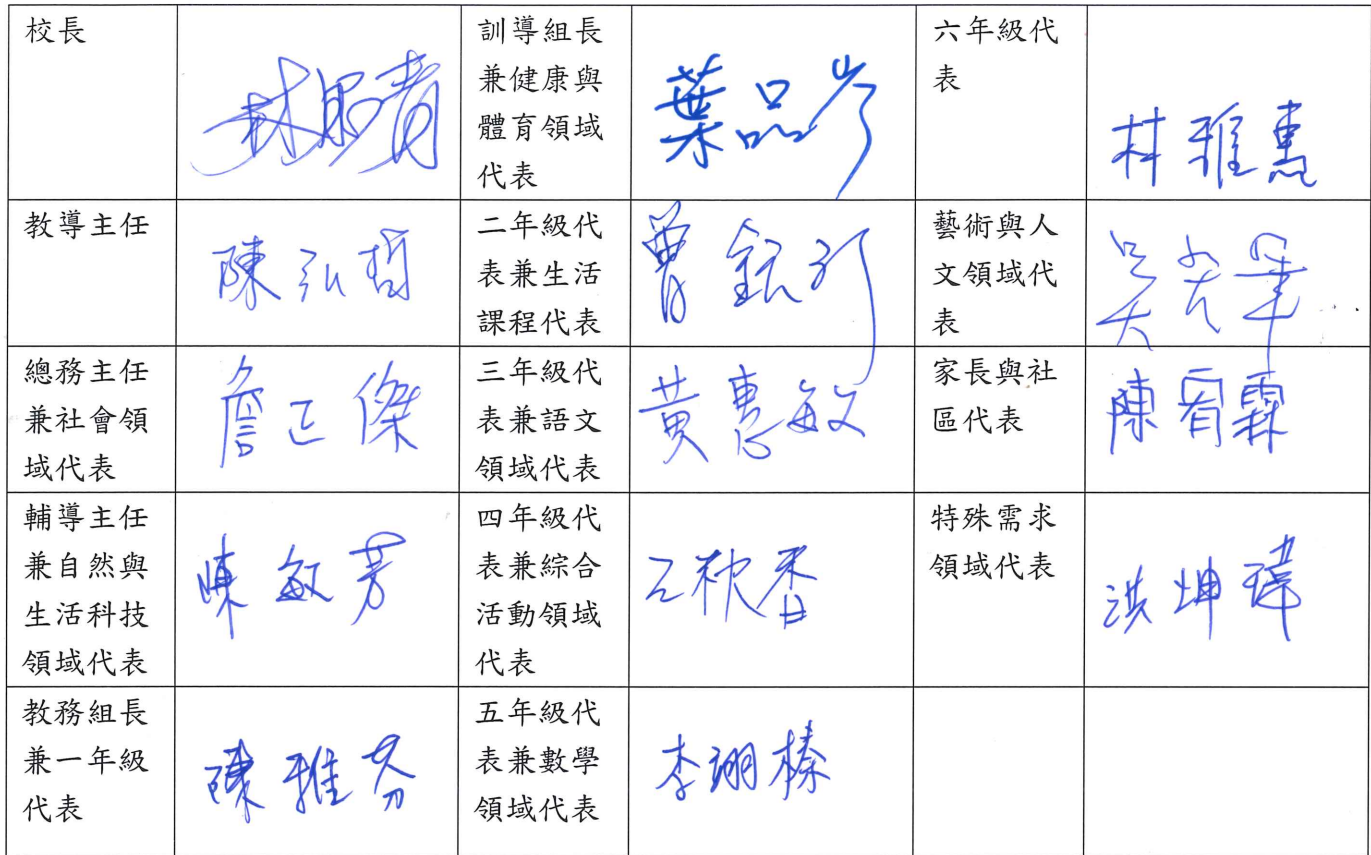 校長
訓導組長
兼健康與
體育領域
代表
葉品岑
六年級代
表
林雅惠
教導主任
陳弘哲
二年級代
表兼生活
課程代表
藝術與人
文領域代
表
總務主任
兼社會領
域代表
詹正傑
三年級代
表兼語文
領域代表
黃惠敏
家長與社
區代表
陳宥霖
輔導主任
兼自然與
生活科技
領域代表
陳敏芳
四年級代
表兼綜合
活動領域
代表
特殊需求
領域代表
洪坤瑋
教務組長
兼一年級
代表
陳雅芬
五年級代
表兼數學
領域代表
李翊榛